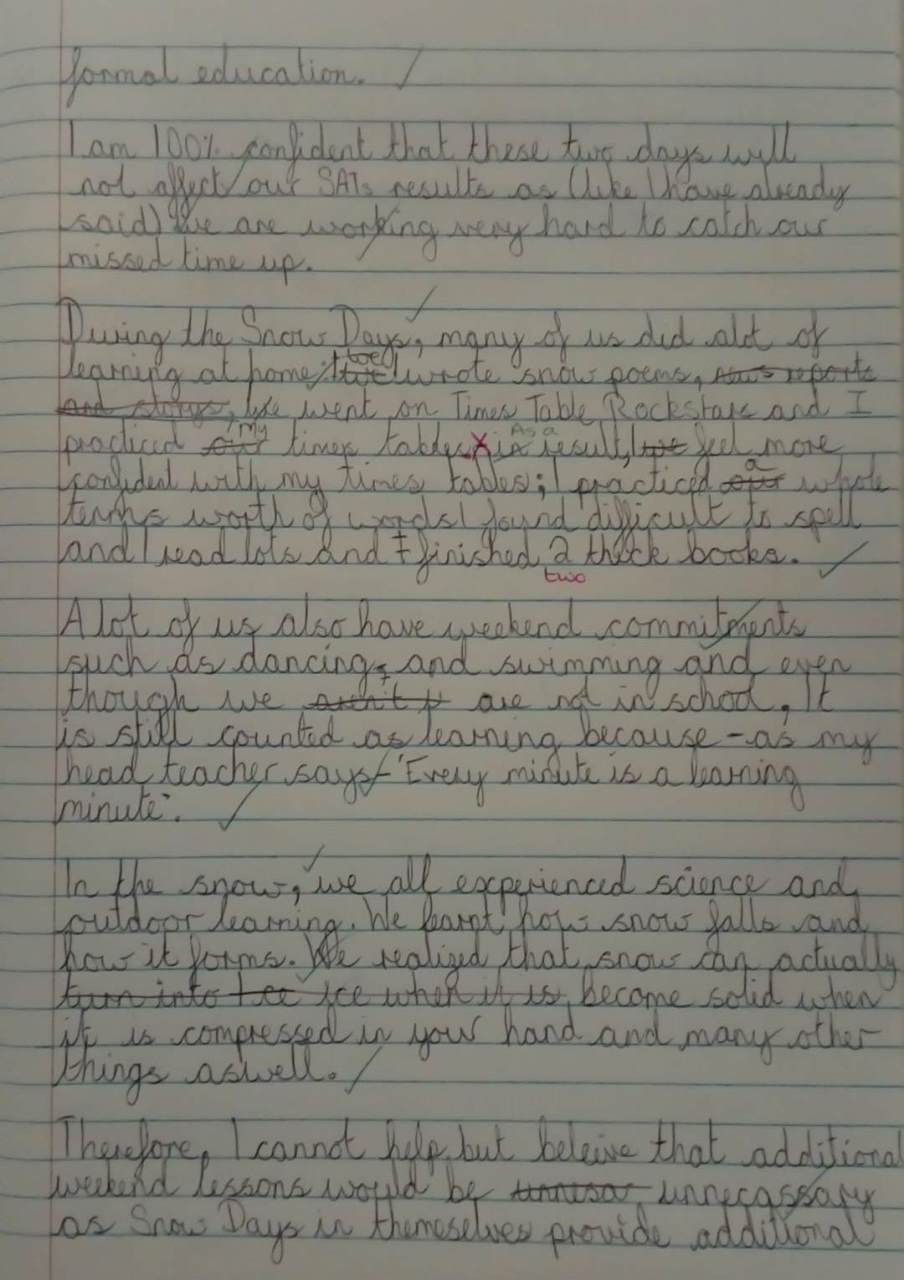 formal education.
I am 100% confident that these two days will
not affect our SATs results as (like I have already
said) We are working very hard to catch our
missed time up.
During the Snow Days, many of us did alot of
learning at home; we wrote snow poems,
we went on Times Table Rockstars and I
practiced my times tables As a result, I feel more
confident with my times tables; I practiced a whole
terms worth of words I found difficult to spell
and I read lots and I finished 2 thick books.
two
A lot of us also have weekend commitments
such as dancing, and swimming and even
though we are not in school, It
is still counted as learning because - as my
head teacher says - 'Every minute is a learning
minute'.
In the snow, we all experienced science and
outdoor learning. We learnt how snow falls and
how it forms. We realized that snow can actually
ice when it is become solid when
it is compressed in your hand and many other
things aswell.
Therefore, I cannot help but beleive that additional
weekend lessons would be unnecassary
as Snow Days in themeselves provide additional